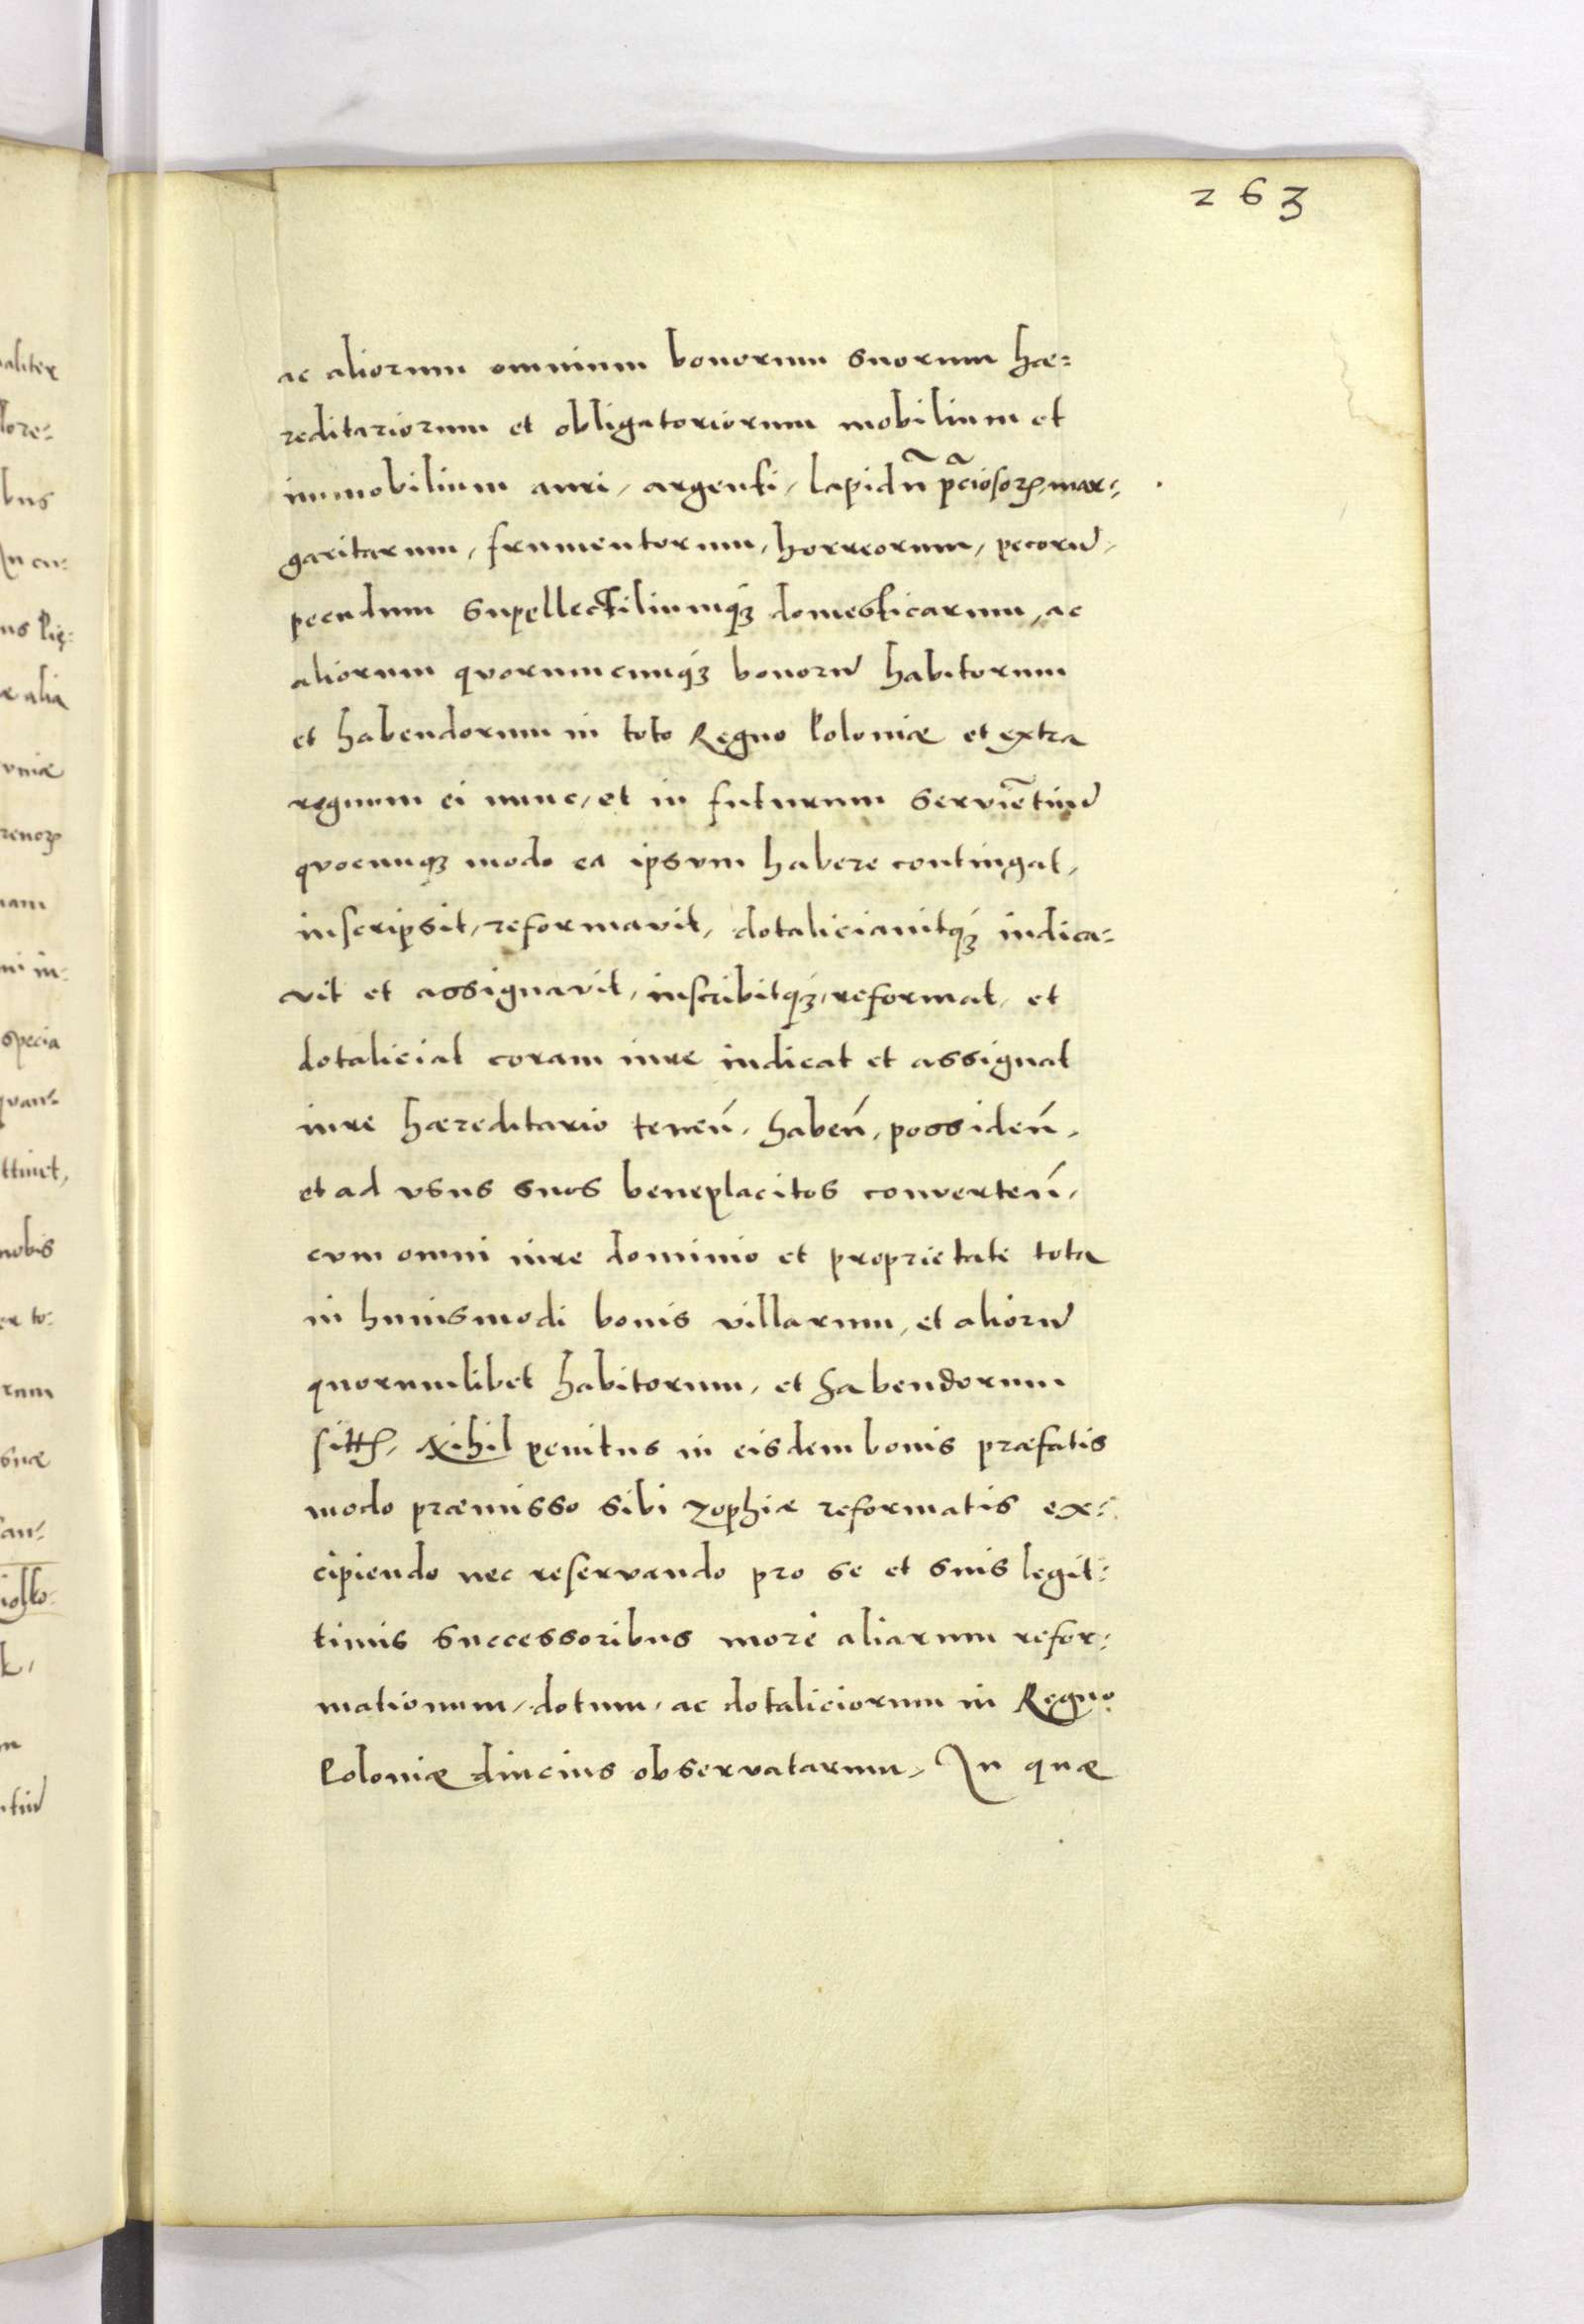 263
ac aliorum omnium bonorum suorum hæ=
reditariorum et obligatoriorum mobilium et
immobilium auri, argenti, lapidũ p̃ciosoꝝ, mar=
garitarum, frumentorum, horreorum, pecorũ,
pecudum supellectiliumqꝫ domesticarum, ac
aliorum quorumcunqꝫ bonorũ habitorum
et habendorum in toto Regno Poloniæ et extra
regnum ei nunc, et in futurum serviẽtiũ
quocunqꝫ modo ea ipsvm habere contingat,
inscripsit, reformavit, dotaliciauitqꝫ indica=
vit et assignavit, inscribitqꝫ, reformat, et
dotaliciat coram iure indicat et assignat
iure hæreditario teneń, habeń, possideń,
et ad vsus suos beneplacitos converteń,
cvm omni iure dominio et proprietate tota
in huiusmodi bonis villarum, et aliorũ
quorumlibet habitorum, et habendorum
Nihil penitus in eisdem bonis præfatis
modo præmisso sibi Zophiæ reformatis ex=
cipiendo nec reservando pro se et suis legit=
timis successoribus more aliarum refor=
mationum, dotum, ac dotaliciorum in Regno
Poloniæ diucius observatarum, In quæ
aliter
lore=
bus
In cu=
us lię=
alia
renoꝝ
nam
ni in=
specia
quan=
ttinet,
nobis
rum
suæ